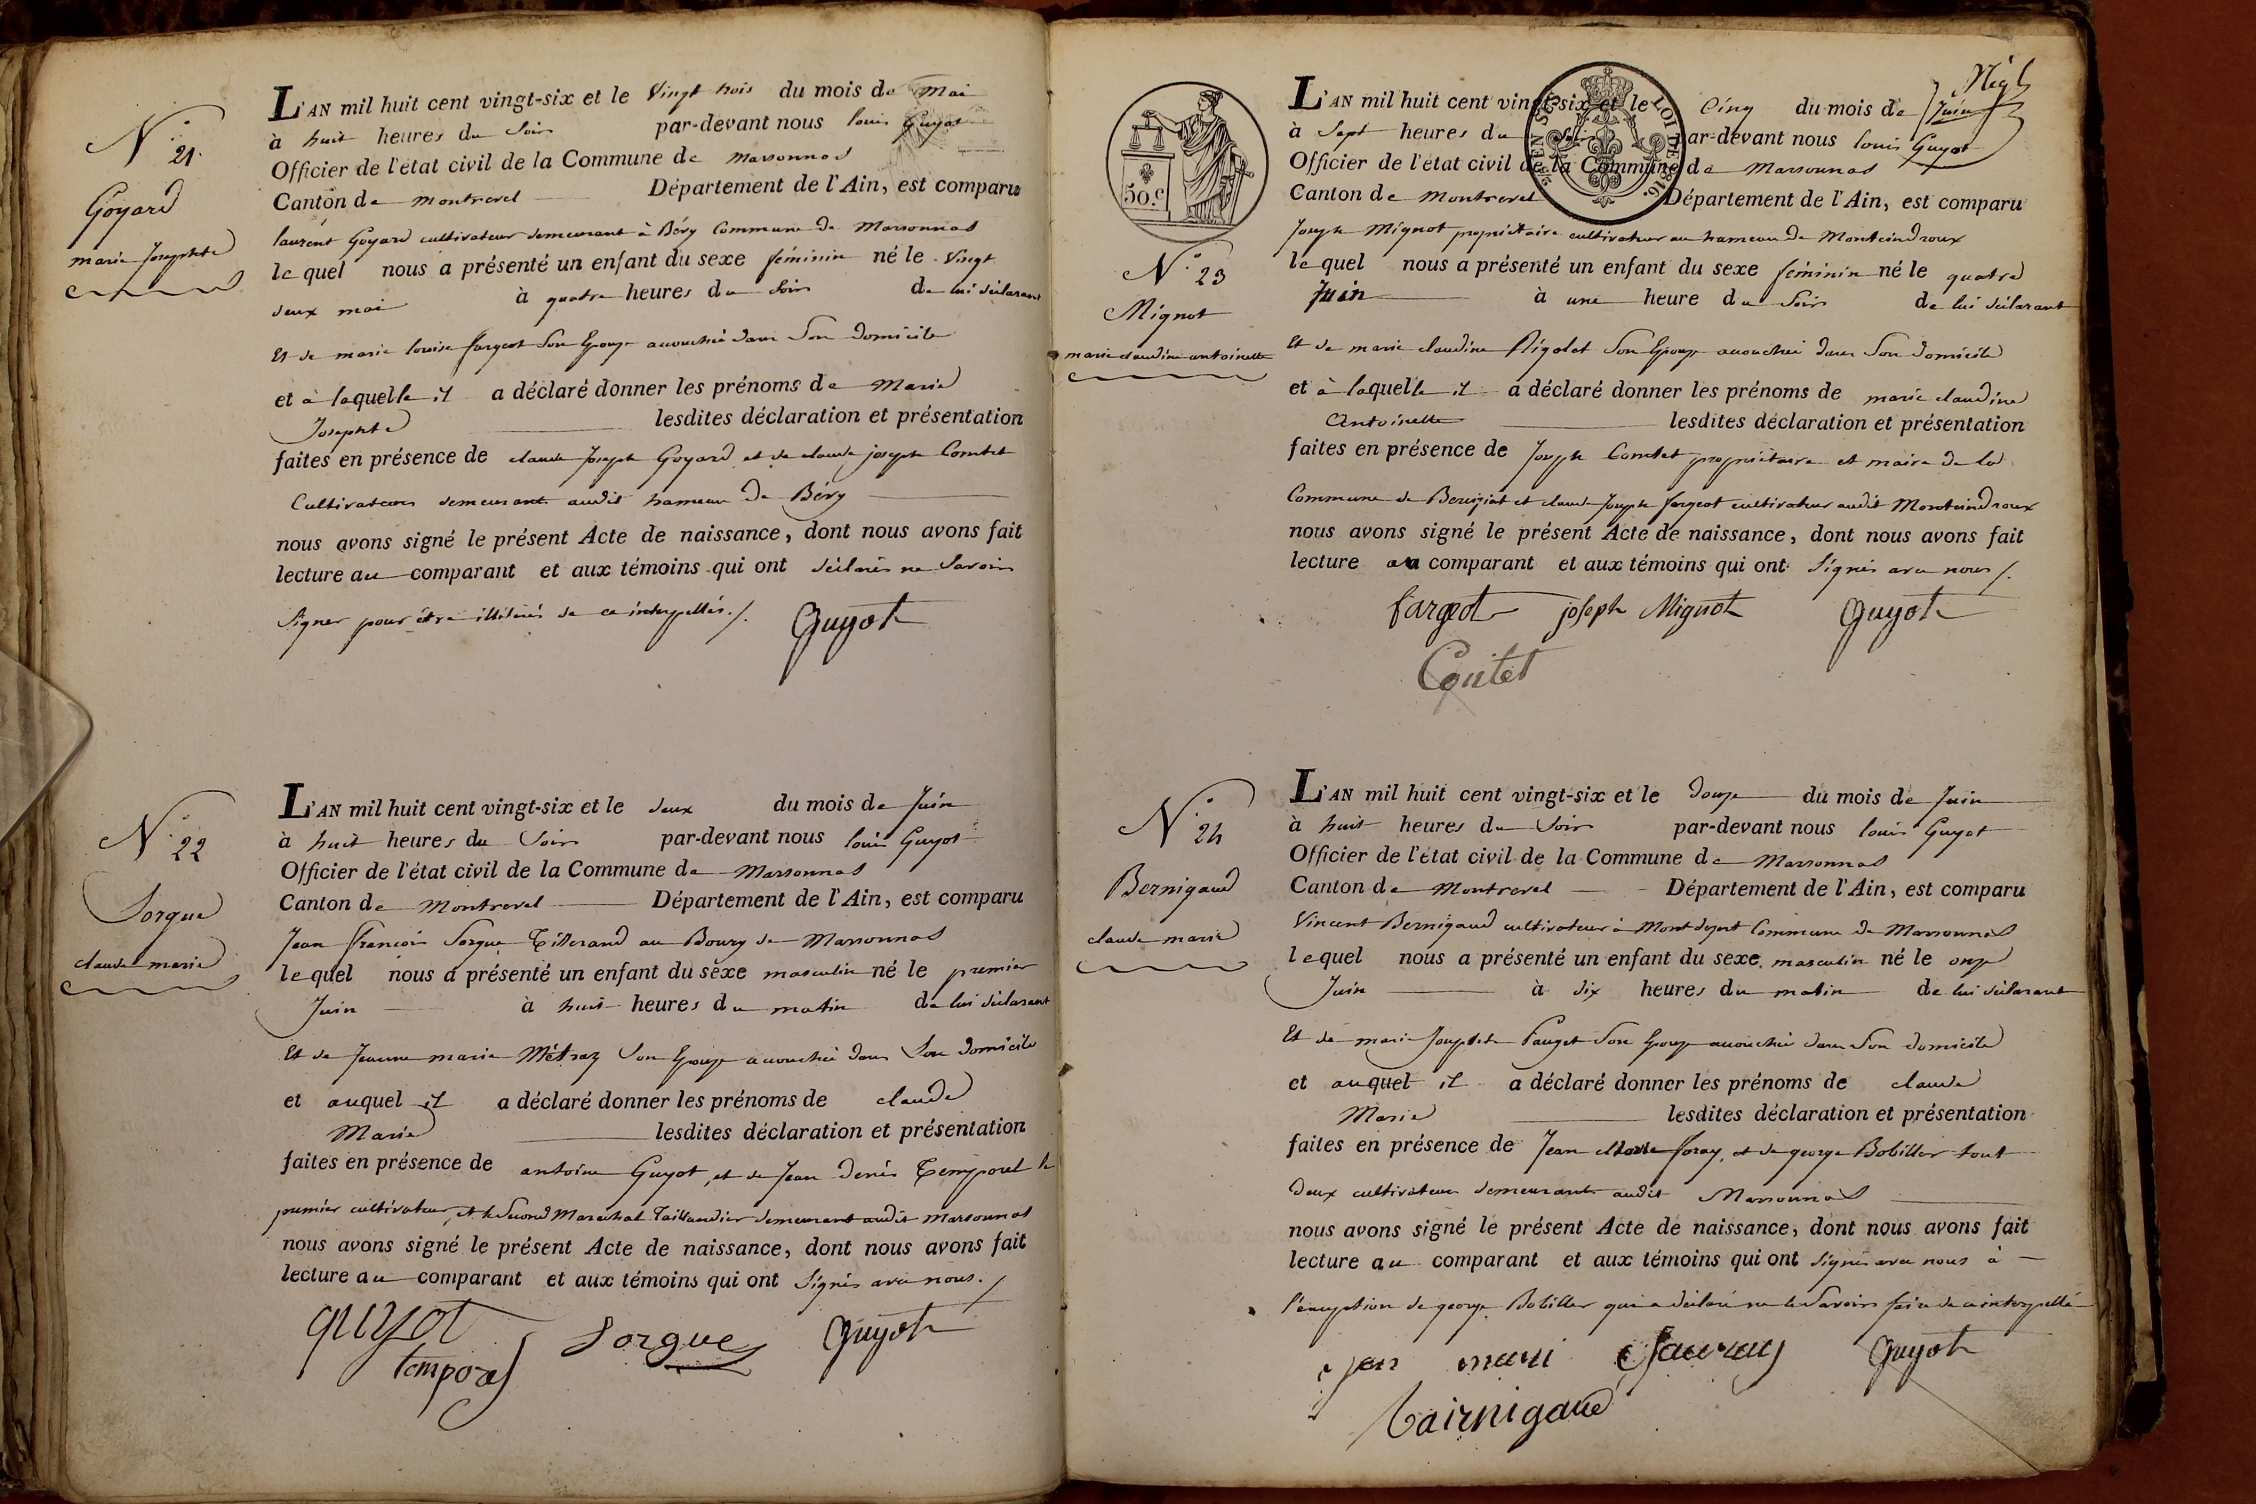 N.o 21.
Goyard
marie Josephte
L'AN mil huit cent vingt-six et le vingt trois du mois de mai
à huit heures du Soir par-devant nous louis Guyot
Officier de l'état civil de la Commune de Marsonnas
Canton de Montrevel Département de l'Ain, est comparu
laurent Goyard cultivateur demeurant à Béry Commune de Marsonnas
lequel nous a présenté un enfant du sexe féminin né le vingt
deux mai à quatre heures du Soir de lui déclarant
Et de marie louise fargeot Son Epouse accouchée dans Son domicile
et à laquelle il a déclaré donner les prénoms de Marie
Josephte lesdites déclaration et présentation
faites en présence de claude Joseph Goyard et de claude joseph Comtet
Cultivateurs demeurant audit hameau de Béry
nous avons signé le présent Acte de naissance, dont nous avons fait
lecture au comparant et aux témoins qui ont déclarés ne Savoir
Signer pour être illitérés de ce interpellés./.
Guyot
N.o 22
Sorgue
claude marie
L'AN mil huit cent vingt-six et le deux du mois de Juin
à huit heures du Soir par-devant nous louis Guyot
Officier de l'état civil de la Commune de Marsonnas
Canton de Montrevel Département de l'Ain, est comparu
Jean françois Sorgue Tisserand au Bourg de Marsonnas
lequel nous a présenté un enfant du sexe masculin né le premier
Juin à huit heures du matin de lui déclarant
Et de Jeanne marie Métraz Son Epouse accouchée dans Son domicile
et auquel il a déclaré donner les prénoms de claude
Marie lesdites déclaration et présentation
faites en présence de antoine Guyot, et de Jean denis Temporel le
premier cultivateur, et le Second Maréchal Taillandier demeurant audit Marsonnas
nous avons signé le présent Acte de naissance, dont nous avons fait
lecture au comparant et aux témoins qui ont Signés avec nous./
guyot Sorgue Guyot
temporel
50.c
2/3 EN SUS LOI DE 1816.
N.o 23
Mignot
marie claudine antoinette
L'AN mil huit cent vingt-six et le Cinq du mois de Juin
à Sept heures du Soir par-devant nous louis Guyot
Officier de l'état civil de la Commune de Marsonnas
Canton de Montrevel Département de l'Ain, est comparu
Joseph Mignot propriétaire cultivateur au hameau de Monteindroux
lequel nous a présenté un enfant du sexe féminin né le quatre
Juin à une heure du Soir de lui déclarant
Et de marie claudine Rigolet Son Epouse accouchée dans Son domicile
et à laquelle il a déclaré donner les prénoms de marie claudine
Antoinette lesdites déclaration et présentation
faites en présence de Joseph Comtet propriétaire et maire de la
Commune de Bereiziat et claude Joseph fargeot cultivateur audit Monteindroux
nous avons signé le présent Acte de naissance, dont nous avons fait
lecture au comparant et aux témoins qui ont Signés avec nous/.
fargeot joseph Mignot Guyot
Contet
N.o 24
Bernigaud
claude marie
L'AN mil huit cent vingt-six et le douze du mois de Juin
à huit heures du Soir par-devant nous louis Guyot
Officier de l'état civil de la Commune de Marsonnas
Canton de Montrevel Département de l'Ain, est comparu
Vincent Bernigaud cultivateur à Mont dezert Commune de Marsonnas
lequel nous a présenté un enfant du sexe masculin né le onze
Juin à six heures du matin de lui déclarant
Et de marie Josephte Pauget Son Epouse accouchée dans Son domicile
et auquel il a déclaré donner les prénoms de claude
Marie lesdites déclaration et présentation
faites en présence de Jean Marie foray, et de george Bobiller tout
deux cultivateurs demeurants audit Marsonnas
nous avons signé le présent Acte de naissance, dont nous avons fait
lecture au comparant et aux témoins qui ont Signés avec nous à
l'exception de george Bobiller qui a déclaré ne le Savoir faire de ce interpellé
jan mari Guyot
bairnigaud